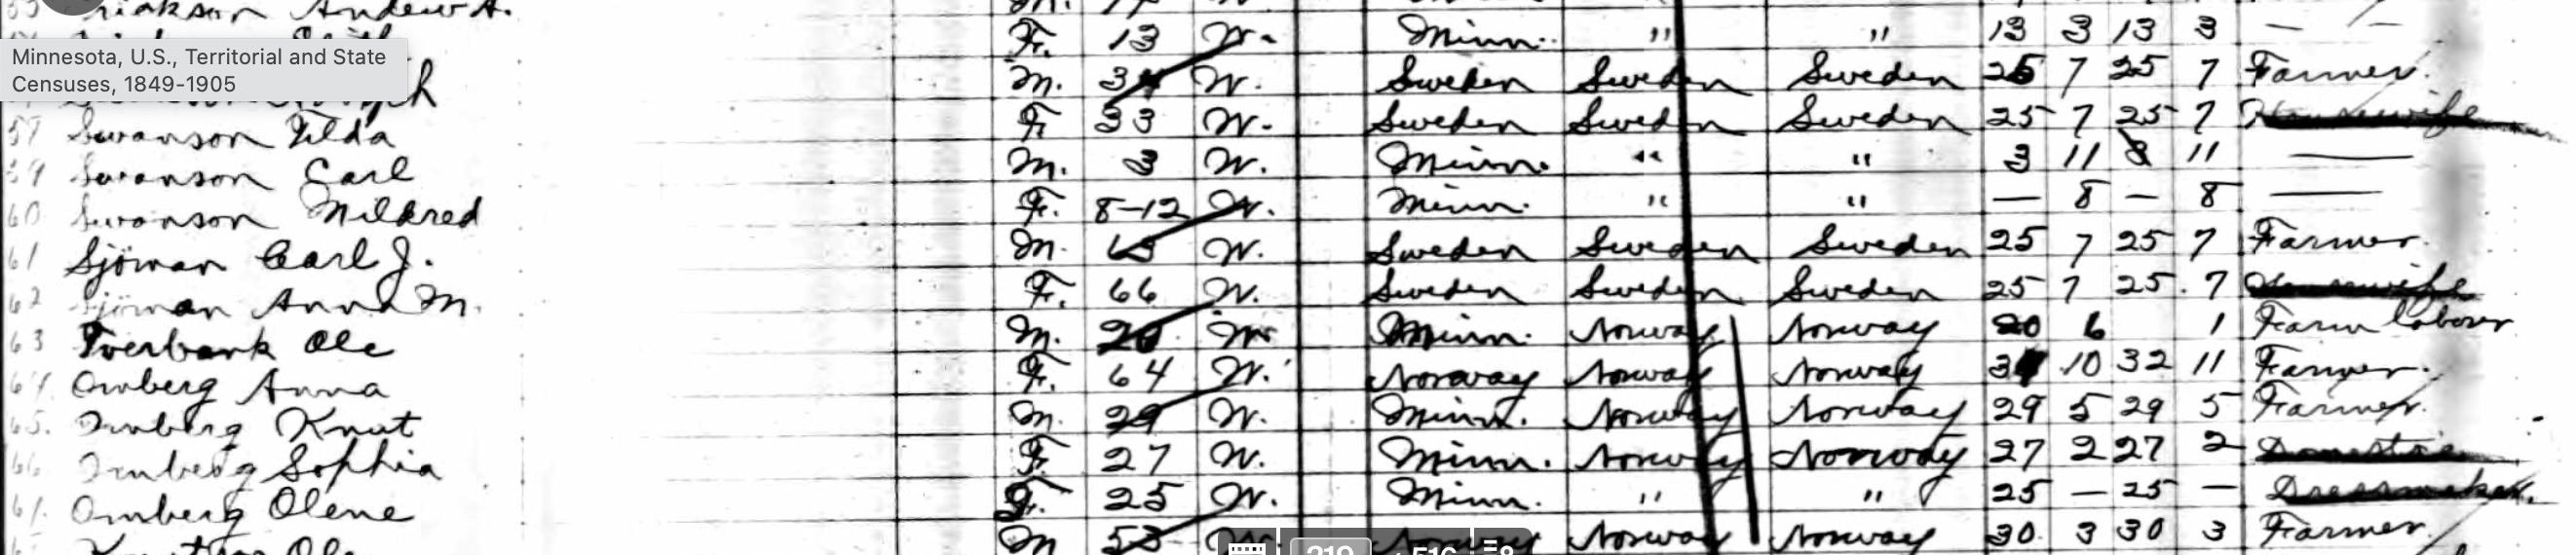 Andrew A.
F. 13 W. Minn. " " 13 3 13 3 — —
Minnesota, U.S., Territorial and State
Censuses, 1849-1905
M. W. Sweden Sweden Sweden 25 7 25 7 Farmer.
57 Swanson Tilda F. 33 W. Sweden Sweden Sweden 25 7 25 7 Housewife
59 Swanson Carl M. 3 W. Minn. " " 3 11 3 11 —
60 Swanson Mildred F. 8-12 W. Minn. " " — 8 — 8 —
61 Sjöman Carl J. M. W. Sweden Sweden Sweden 25 7 25 7 Farmer
62 Sjöman Anna M. F. 66 W. Sweden Sweden Sweden 25 7 25 7 Housewife
63 Ole M. W Minn. Norway Norway 20 6 1 Farm laborer
64 Omberg Anna F. 64 W. Norway Norway Norway 10 32 11 Farmer.
65. Omberg Knut M. 29 W. Minn. Norway Norway 29 5 29 5 Farmer
66 Omberg Sophia F. 27 W. Minn. Norway Norway 27 2 27 2 Domestic
67. Omberg Olene F. 25 W. Minn. " " 25 — 25 — Dressmaker.
Ole M 53 W. Norway Norway Norway 30 3 30 3 Farmer
219 516 8